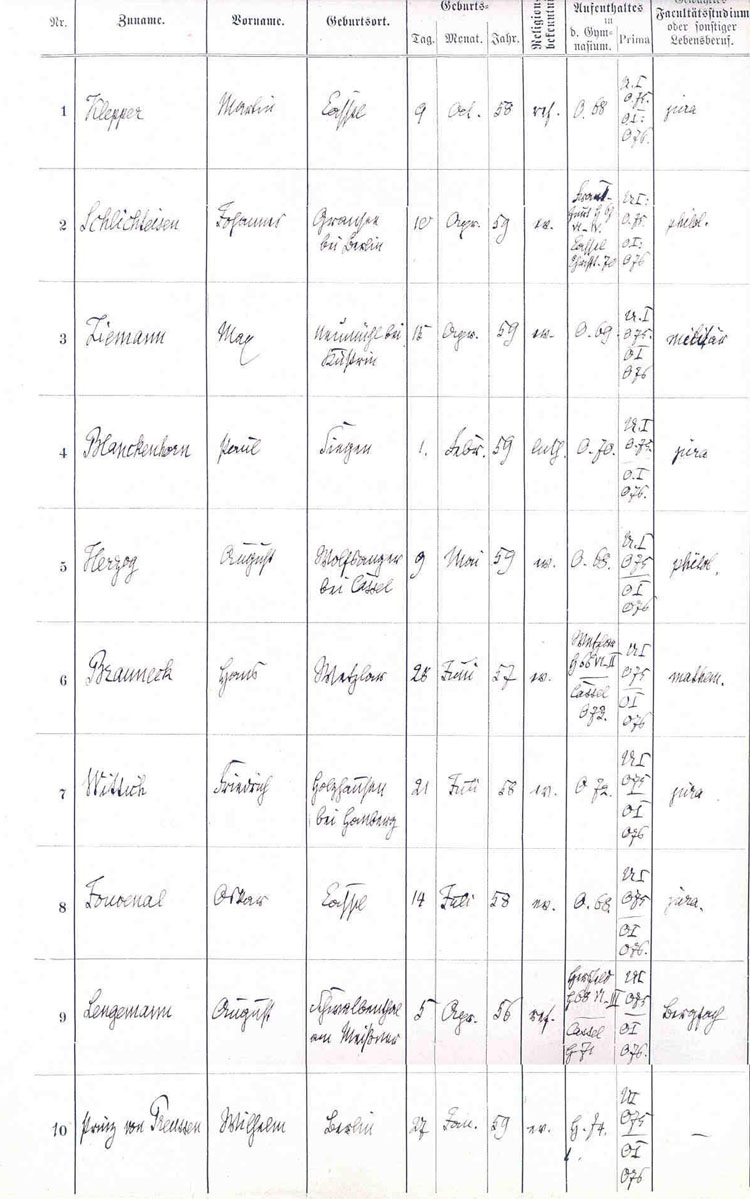 Nr.
Zuname.
Vorname.
Geburtsort.
Geburts-
Tag. Monat. Jahr.
Religions-
bekenntnis
Aufenthaltes
in
d. Gym-
nasium. Prima
Facultätsstudium
oder sonstiger
Lebensberuf.
1 Klepper Martin Cassel 9 Oct. 58 ref. O. 68 jura
U.I
O.75.
O I:
O 76.
2 Schlichteisen Johannes Gransee 10 Apr. 59 ev. philol.
bei Berlin
Cassel
U I:
O.75.
O I:
O 76
3 Ziemann Max Neumühl bei 15 Apr. 59 ev. O. 69. militär
Küstrin
U.I
O 75.
O I
O 76
4 Blanckenhorn Paul Siegen 1. Febr. 59 luth. O. 70. jura
U.I
O.75.
O.I
O 76.
5 Herzog August Wolfsanger 9 Mai 59 ev. O. 68. philol.
bei Cassel
U.I
O 75
O I
O 76
6 Brauneck Hans Wetzlar 28 Juni 57 ev. mathem.
Wetzlar
Cassel
O 72.
U I
O 75
O I
O 76
7 Wittich Friedrich Holzhausen 21 Juli 58 ev. O 72. jura
bei Homberg
U I
O 75
O I
O 76
8 Jouvenal Oskar Cassel 14 Juli 58 ev. O. 68. jura.
U I
O 75
O I
O 76.
9 Lengemann August Schwalbenthal 5 Apr. 56 ref. Bergfach
am Meißner
Hersfeld
Cassel
H 71
U I
O 75
O I
O 76.
10 Prinz von Preussen Wilhelm Berlin 27 Jan. 59 ev. H. 74. —
U I
O 75
O I
O 76